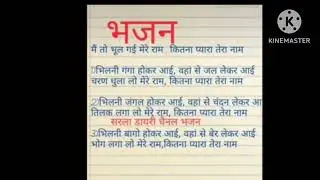 भजन
KINEMASTER
मैं तो भूल गई मेरे राम कितना प्यारा तेरा नाम
①भिलनी गंगा होकर आई, वहां से जल लेकर आई
चरण धुला लो मेरे राम, कितना प्यारा तेरा नाम
②भिलनी जंगल होकर आई, वहां से चंदन लेकर आ
तिलक लगा लो मेरे राम, कितना प्यारा तेरा नाम
सरला डायरी चैनल भजन
③भिलनी बागो होकर आई, वहां से बेर लेकर आई
भोग लगा लो मेरे राम,कितना प्यारा तेरा नाम